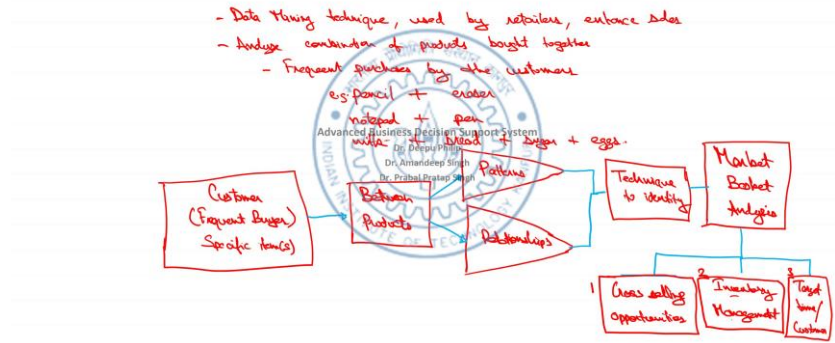 - Data Mining technique, used by retailers, enhance sales
- Analyze combination of products bought together
- Frequent purchases by the customers
e.g. pencil + eraser
notepad + pen
milk + bread + sugar + eggs.
Advanced Business Decision Support System
Dr. Deepu Philip
Dr. Amandeep Singh
Dr. Prabal Pratap Singh
INDIAN INSTITUTE OF TECHNOLOGY
Customer
(Frequent Buyer)
Specific item(s)
Between
Products
Patterns
Relationships
Technique
to identify
Market
Basket
Analysis
1 Cross selling
opportunities
2 Inventory
Management
3 Target
time/
Customer